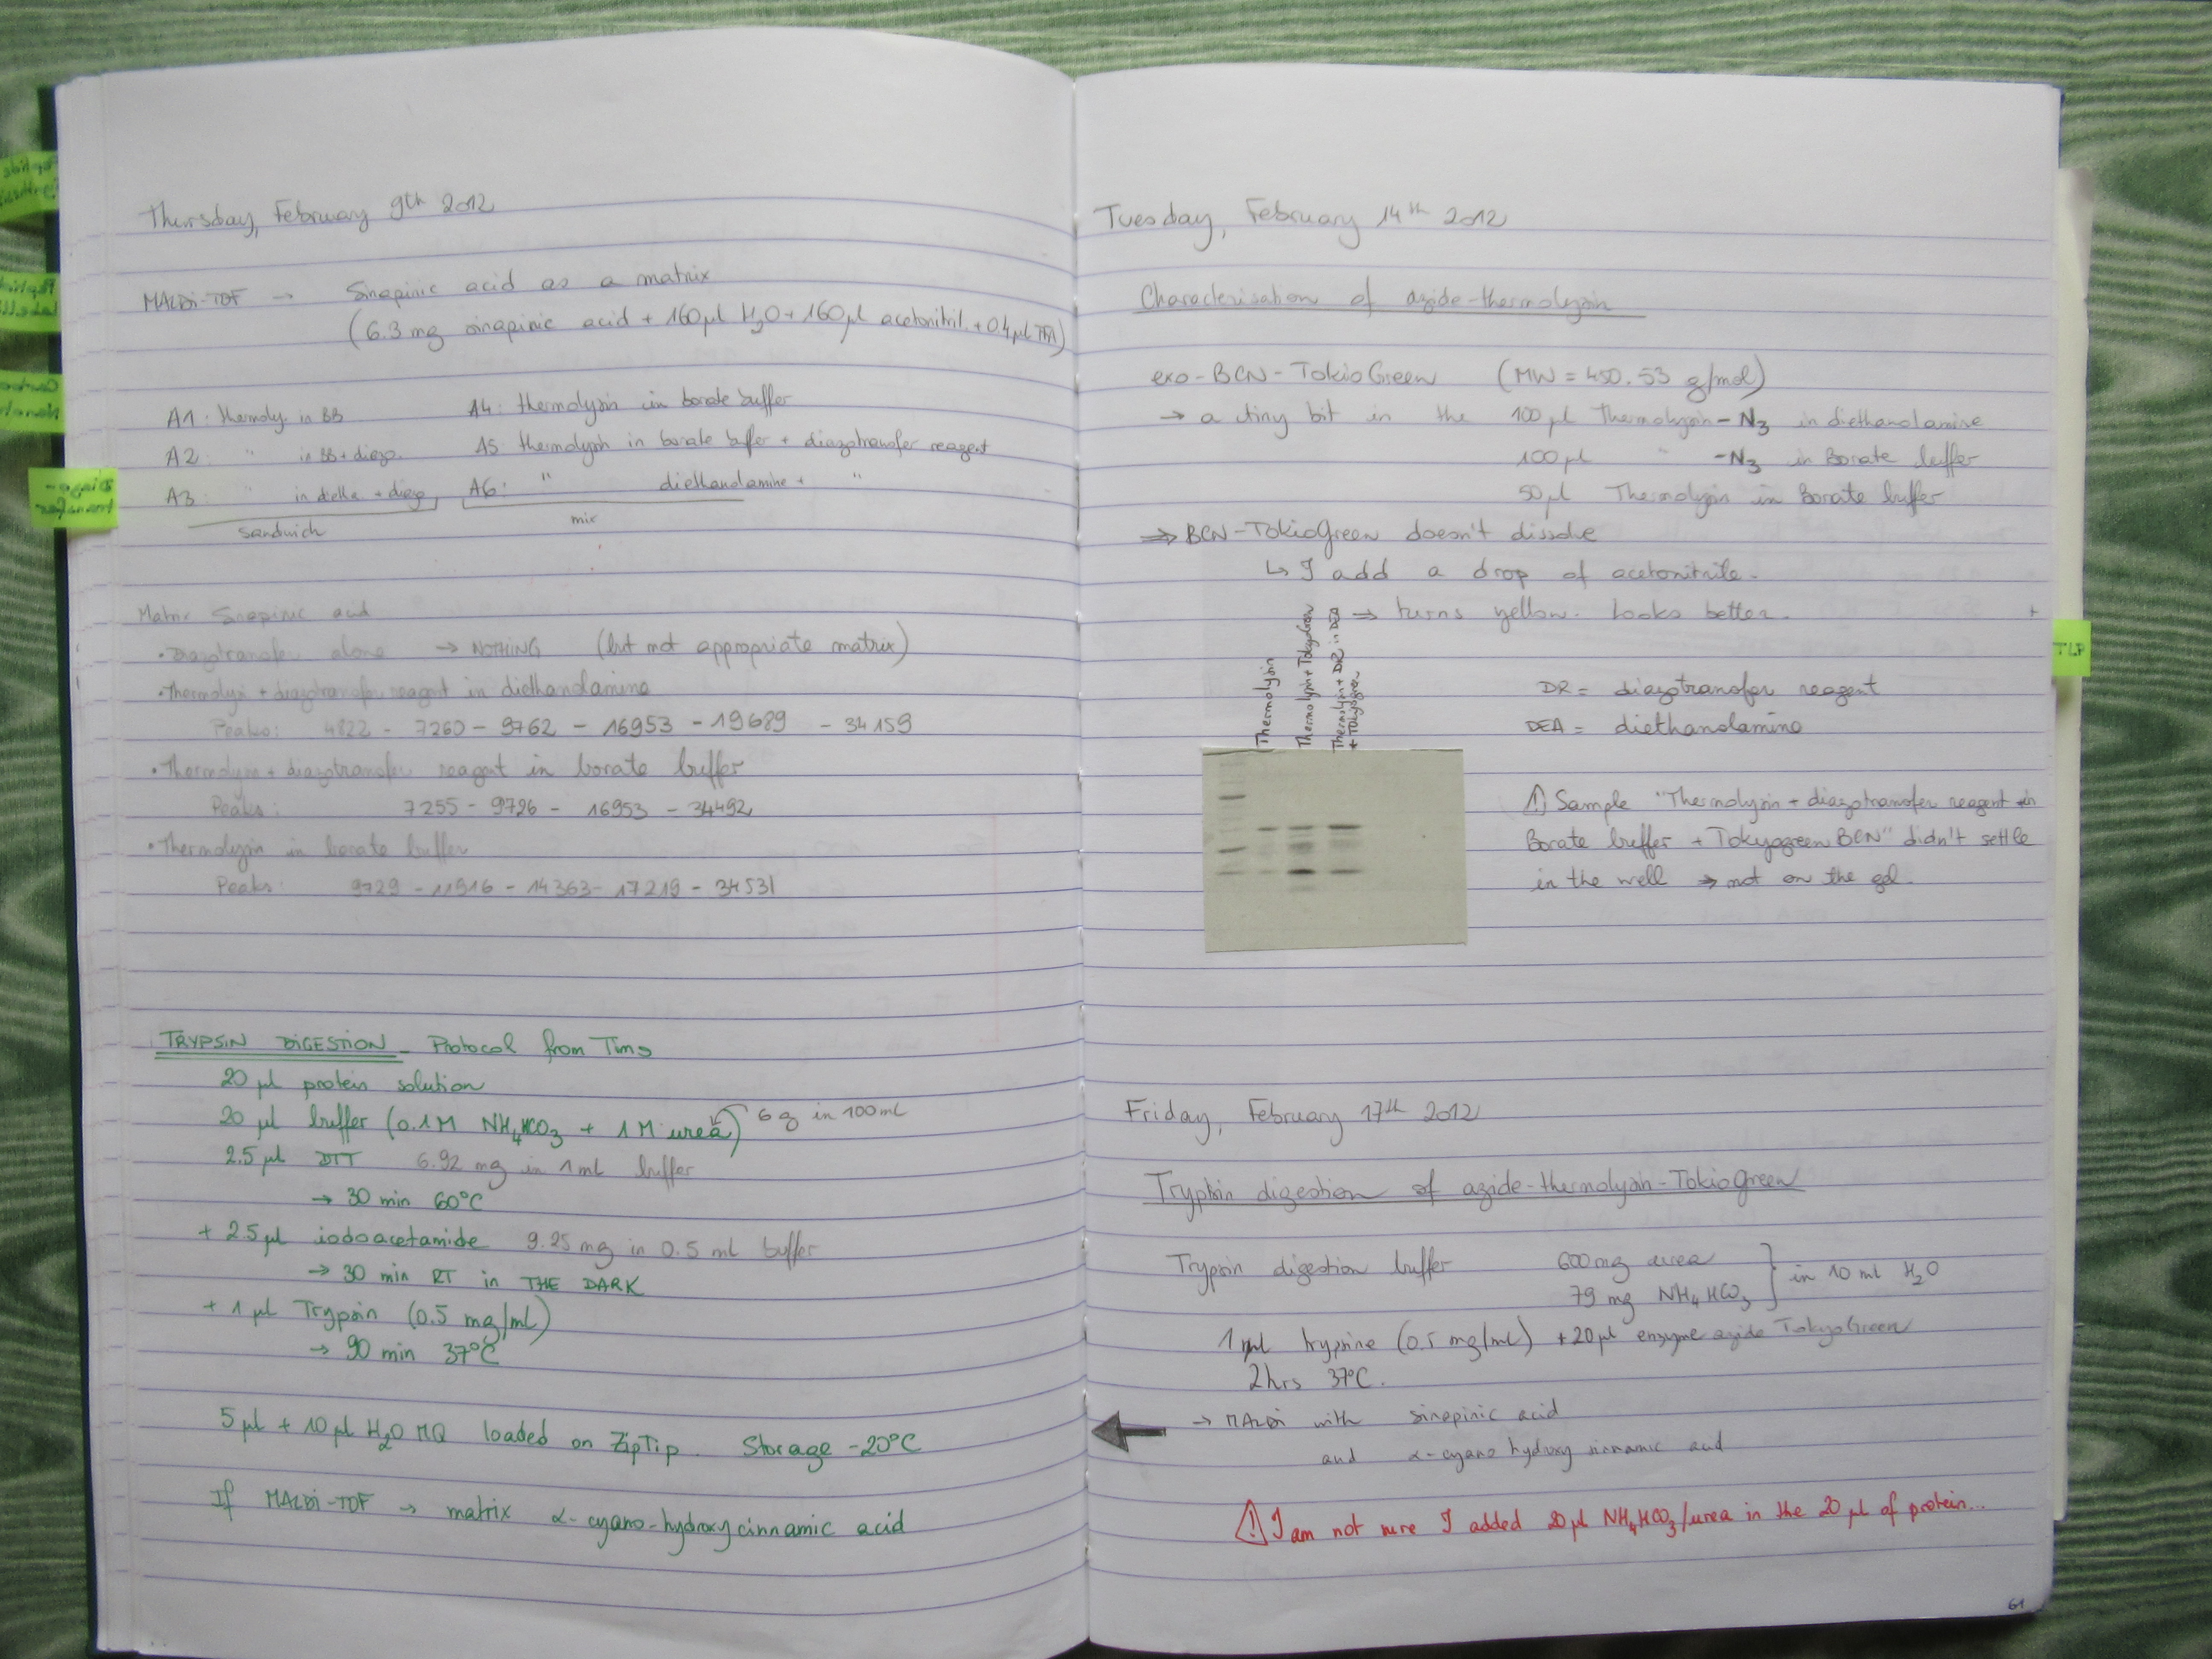 Thursday, February 9th 2012
MALDi-TOF → Sinapinic acid as a matrix
(6.3 mg sinapinic acid + 160 µl H2O + 160 µl acetonitril + 0.4 µl TFA)
A1 : thermoly. in BB
A2 : " in BB + diazo.
A3 : " in dietha + diazo
sandwich
A4 : thermolysin in borate buffer
A5 thermolysin in borate buffer + diazotransfer reagent
A6 : " diethanolamine + "
mix
Matrix Sinapinic acid
• Diazotransfer alone → NOTHING (but not appropriate matrix)
• Thermolysin + diazotransfer reagent in diethanolamine
Peaks : 4822 - 7260 - 9762 - 16953 - 19689 - 34159
• Thermolysin + diazotransfer reagent in borate buffer
Peaks : 7255 - 9726 - 16953 - 34492
• Thermolysin in borate buffer
Peaks : 9729 - 11916 - 14363 - 17219 - 34531
TRYPSiN DiGESTiON - Protocol from Tims
20 µl protein solution
20 µl buffer (0.1M NH4HCO3 + 1M urea) 6 g in 100 mL
2.5 µl DTT 6.92 mg in 1 mL buffer
→ 30 min 60°C
+ 2.5 µl iodoacetamide 9.25 mg in 0.5 ml buffer
→ 30 min RT in THE DARK
+ 1 µl Trypsin (0.5 mg/ml)
→ 90 min 37°C
5 µl + 10 µl H2O MQ loaded on ZipTip. Storage -20°C
If MALDi-TOF → matrix α-cyano-hydroxycinnamic acid
Diazo-
transfer
Tuesday, February 14th 2012
Characterisation of azide-thermolysin
exo-BCN-TokioGreen (MW = 450.53 g/mol)
→ a tiny bit in the 100 µl Thermolysin-N3 in diethanolamine
100 µl " -N3 in Borate buffer
50 µl Thermolysin in Borate buffer
⇒ BCN-TokioGreen doesn't dissolve
↳ I add a drop of acetonitrile.
⇒ turns yellow. Looks better.
Thermolysin
Thermolysin + TokyoGreen
Thermolysin + DR in DEA
+ Tokyogreen
DR = diazotransfer reagent
DEA = diethanolamine
⚠ Sample "Thermolysin + diazotransfer reagent in
Borate buffer + Tokyogreen BCN" didn't settle
in the well → not on the gel.
TLP
Friday, February 17th 2012
Trypsin digestion of azide-thermolysin-TokioGreen
Trypsin digestion buffer 600 mg urea
79 mg NH4HCO3 } in 10 ml H2O
1 µl trypsine (0.5 mg/ml) + 20 µl enzyme azide TokyoGreen
2 hrs 37°C.
→ MALDi with sinapinic acid
and α-cyano hydroxy cinnamic acid
⚠ I am not sure I added 20 µl NH4HCO3/urea in the 20 µl of protein...
61